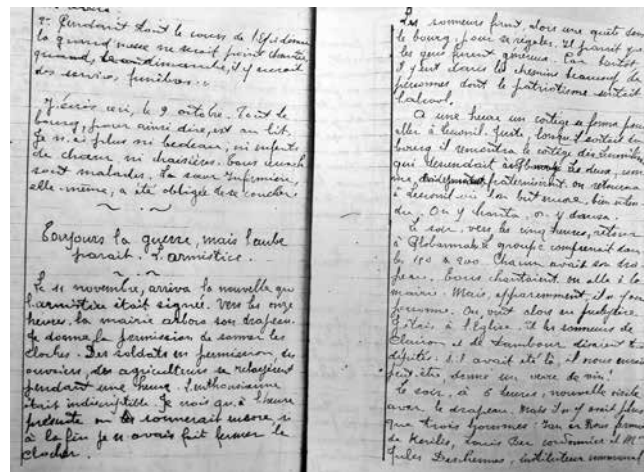 2º Pendant tout le cours de l'Epidémie
la grand'messe ne serait point chantée
quand, le dimanche, il y aurait
des services funèbres.
J'écris ceci, le 9 octobre. Tout le
bourg, pour ainsi dire, est au lit.
Je n'ai plus ni bedeau, ni enfants
de chœur, ni chaisières. Tous
sont malades. La sœur infirmière,
elle-même, a été obligée de se coucher
Toujours la guerre, mais l'aube
parait. L'armistice.
Le 11 novembre, arriva la nouvelle que
l'armistice était signée. Vers les onze
heures, la mairie arbora son drapeau.
Je donnai la permission de sonner les
cloches. Des soldats en permission, des
ouvriers, des agriculteurs se relayèrent
pendant une heure. L'enthousiasme
était indescriptible. Je crois qu'à l'heure
présente on sonnerait encore si
à la fin je n'avais fait fermer le
clocher.
Les sonneurs firent alors une quête dans
le bourg, pour se régaler. Il parait que
les gens furent généreux. Car bientôt
il y eut dans les chemins beaucoup de
personnes dont le patriotisme sentait
l'alcool.
A une heure un cortège se forma pour
aller à Lesconil. Juste, lorsqu'il sortait du
bourg il rencontra le cortège de Lesconil
qui descendait. Les deux,
fraternisèrent. on retourna
à Lesconil où l'on but encore, bien enten-
du. On y chanta, on y dansa.
Le soir, vers les cinq heures, retour
à groupe comprenait dans
les 150 à 200. Chacun avait son dra-
peau. Tous chantaient. on alla à la
mairie. Mais, apparemment, il n'y
personne. On vint alors au presbytère.
J'étais à l'église. Et les sonneurs de
clairon et de tambour disaient
dépités : S'il avait été là, il nous aurait
peut-être, donné un verre de vin!
Le soir, à 6 heures, nouvelle visite
avec le drapeau. Mais il n'y avait plus
que trois hommes :
de Louis cordonnier et Mr
Jules Deshermes, instituteur